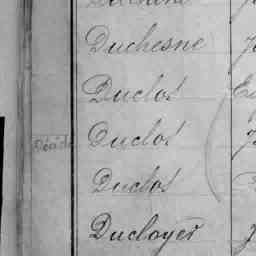 Duchesne
Duclos
Décédé Duclos
Duclos
Ducloyer